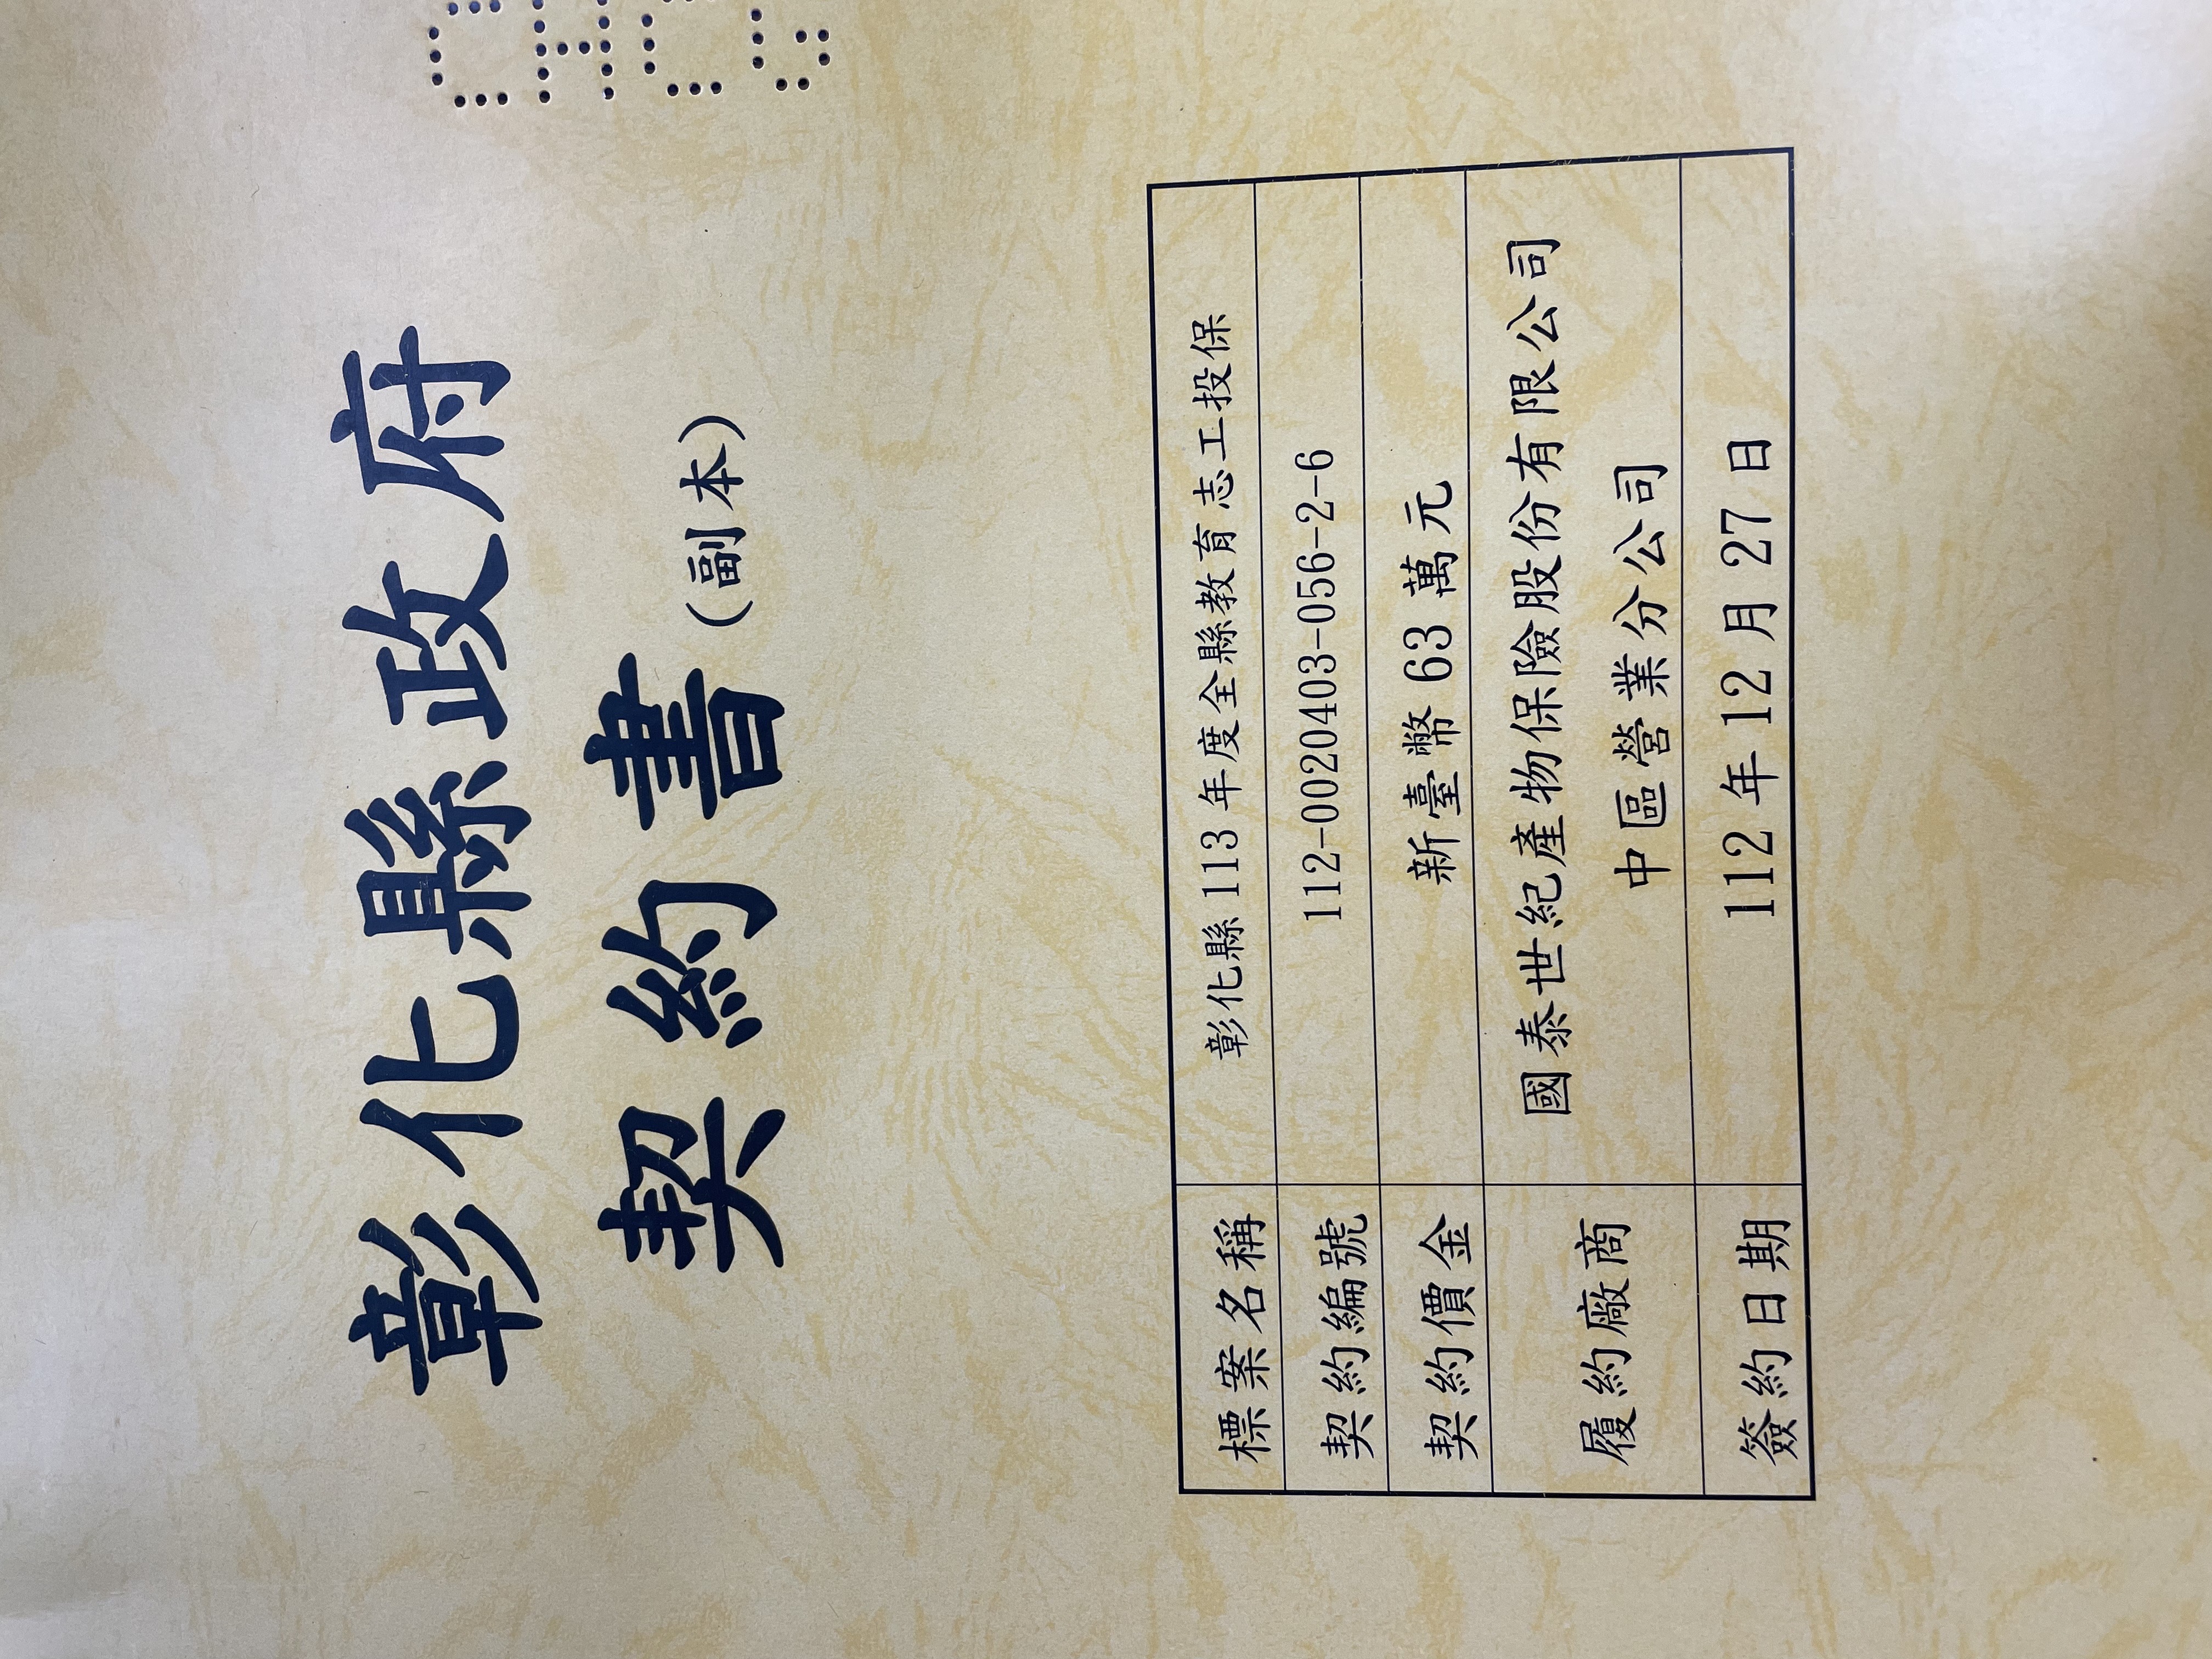 彰化縣政府
契約書(副本)
標案名稱 彰化縣 113 年度全縣教育志工投保
契約編號 112-0020403-056-2-6
契約價金 新臺幣 63 萬元
履約廠商 國泰世紀產物保險股份有限公司
中區營業分公司
簽約日期 112 年 12 月 27 日